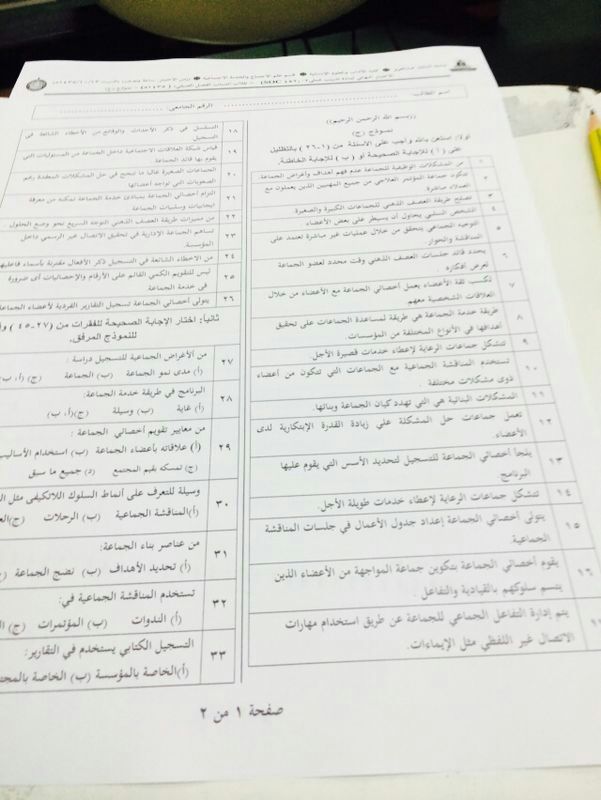 اسم الطالب:
الرقم الجامعي:
(بسم الله الرحمن الرحيم)
نموذج (ج)
أولا: استعن بالله وأجب على الأسئلة من (١-٢٦) بالتظليل
على (أ) للإجابة الصحيحة أو (ب) للإجابة الخاطئة.
١ من المشكلات الوظيفية للجماعة عدم فهم أهداف وأغراض الجماعة.
٢ تتكون جماعة المؤتمر العلاجي من جميع المهنيين الذين يعملون مع
العملاء مباشرة.
٣ تصلح طريقة العصف الذهني للجماعات الكبيرة والصغيرة.
٤ الشخص النشط يحاول أن يسيطر على بعض الأعضاء
٥ التوجيه الجماعي يتحقق من خلال عمليات غير مباشرة تعتمد على
المناقشة والحوار.
٦ يحدد قائد جلسات العصف الذهني وقت محدد لعضو الجماعة
لعرض أفكاره.
٧ لكسب ثقة الأعضاء يعمل أخصائي الجماعة مع الأعضاء من خلال
العلاقات الشخصية معهم.
٨ طريقة خدمة الجماعة هي طريقة لمساعدة الجماعات على تحقيق
أهدافها في الأنواع المختلفة من المؤسسات.
٩ تتشكل جماعات الرعاية لإعطاء خدمات قصيرة الأجل.
١٠ تستخدم المناقشة الجماعية مع الجماعات التي تتكون من أعضاء
ذوى مشكلات مختلفة.
١١ المشكلات البنائية هي التي تهدد كيان الجماعة وبنائها.
١٢ تعمل جماعات حل المشكلة علي زيادة القدرة الإبتكارية لدى
الأعضاء.
١٣ يلجأ أخصائي الجماعة للتسجيل لتحديد الأسس التي يقوم عليها
البرنامج.
١٤ تتشكل جماعات الرعاية لإعطاء خدمات طويلة الأجل.
١٥ يتولى أخصائي الجماعة إعداد جدول الأعمال في جلسات المناقشة
الجماعية.
١٦ يقوم أخصائي الجماعة بتكوين جماعة المواجهة من الأعضاء الذين
يتسم سلوكهم بالقيادية والتفاعل.
يتم إدارة التفاعل الجماعي للجماعة عن طريق استخدام مهارات
الاتصال غير اللفظي مثل الإيماءات.
١٨ التسلسل في ذكر الأحداث والوقائع من الأخطاء الشائعة في
التسجيل
١٩ قياس شبكة العلاقات الاجتماعية داخل الجماعة من المسئوليات التي
يقوم بها قائد الجماعة
٢٠ الجماعات الصغيرة غالبا ما تنجح في حل المشكلات المعقدة رغم
الصعوبات التي تواجه أعضائها
٢١ التزام أخصائي الجماعة بمبادئ خدمة الجماعة تمكنه من معرفة
ايجابيات وسلبيات الجماعة
٢٢ من مميزات طريقة العصف الذهني التوجه السريع نحو وضع الحلول.
٢٣ تساهم الجماعة الإدارية في تحقيق الاتصال غير الرسمي داخل
المؤسسة.
٢٤ من الاخطاء الشائعة في التسجيل ذكر الأفعال مقترنة بأسماء فاعليها
٢٥ ليس للتقويم الكمي القائم على الأرقام والإحصائيات أي ضرورة
في خدمة الجماعة.
٢٦ يتولى أخصائي الجماعة تسجيل التقارير الفردية لأعضاء الجماعة
ثانياً: اختار الإجابة الصحيحة للفقرات من (٢٧-٤٥)
للنموذج المرفق.
٢٧ من الأغراض الجماعية للتسجيل دراسة:
(أ) مدى نمو الجماعة (ب) الجماعة (ج) أ، ب
٢٨ البرنامج في طريقة خدمة الجماعة:
(أ) غاية (ب) وسيلة (ج) أ، ب
٢٩ من معايير تقويم أخصائي الجماعة:
(أ) علاقاته بأعضاء الجماعة (ب) استخدام الأساليب
(ج) تمسكه بقيم المجتمع (د) جميع ما سبق
٣٠ وسيلة للتعرف على أنماط السلوك اللاتكيفى مثل
(أ) المناقشة الجماعية (ب) الرحلات
٣١ من عناصر بناء الجماعة:
(أ) تحديد الأهداف (ب) نضج الجماعة
٣٢ تستخدم المناقشة الجماعية في:
(أ) الندوات (ب) المؤتمرات
٣٣ التسجيل الكتابي يستخدم في التقارير:
(أ) الخاصة بالمؤسسة (ب) الخاصة
صفحة ١ من ٢